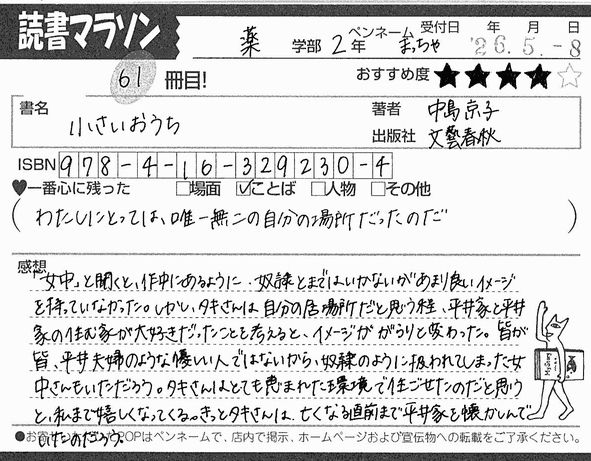 読書マラソン
薬 学部 2年 ペンネーム まっちゃ 受付日 年 月 日
'26.5.-8
61 冊目! おすすめ度 ★★★★☆
書名 小さいおうち
著者 中島京子
出版社 文藝春秋
ISBN 978-4-16-329230-4
♥一番心に残った □場面 ☑ことば □人物 □その他
(わたしにとっては、唯一無二の自分の場所だったのだ)
感想
「女中」と聞くと、作中にあるように、奴隷とまではいかないがあまり良いイメージ
を持っていなかった。しかし、タキさんは自分の居場所だと思う程、平井家と平井
家の住む家が大好きだったことを考えると、イメージががらりと変わった。皆が
皆、平井夫婦のような優しい人ではないから、奴隷のように扱われてしまった女
中さんもいただろう。タキさんはとても恵まれた環境で過ごせたのだと思う
と、私まで嬉しくなってくる。きっとタキさんは、亡くなる直前まで平井家を懐かしんで
いたのだろう。
●お寄せいただいたPOPはペンネームで、店内で掲示、ホームページおよび宣伝物への転載をご了承ください。